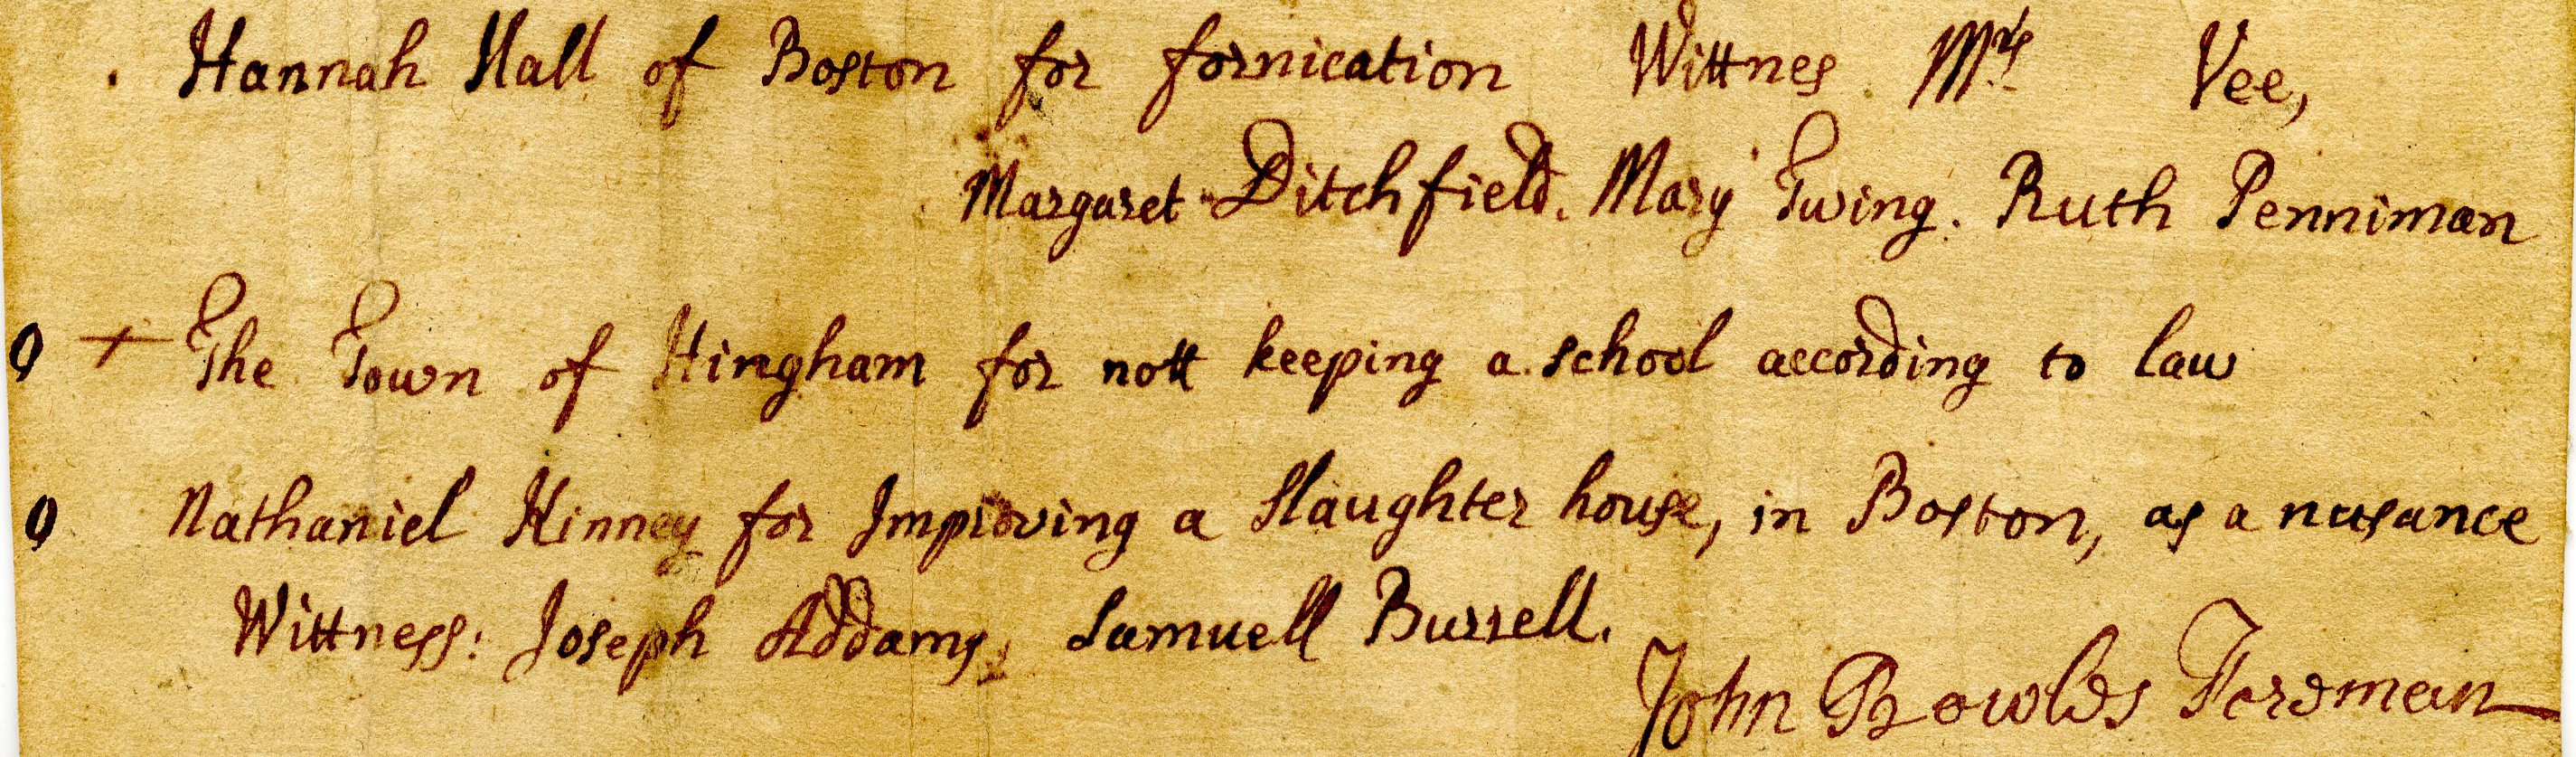 Hannah Hall of Boston for fornication Wittnes Mrs Vee,
Margaret Ditchfield. Mary Twing. Ruth Penniman
0 + The Town of Hingham for nott keeping a school according to law
0 Nathaniel Kinney for Improving a Slaughter house, in Boston, as a nusance
Wittness: Joseph Addams, Samuell Burrell.
John Bowles Foreman